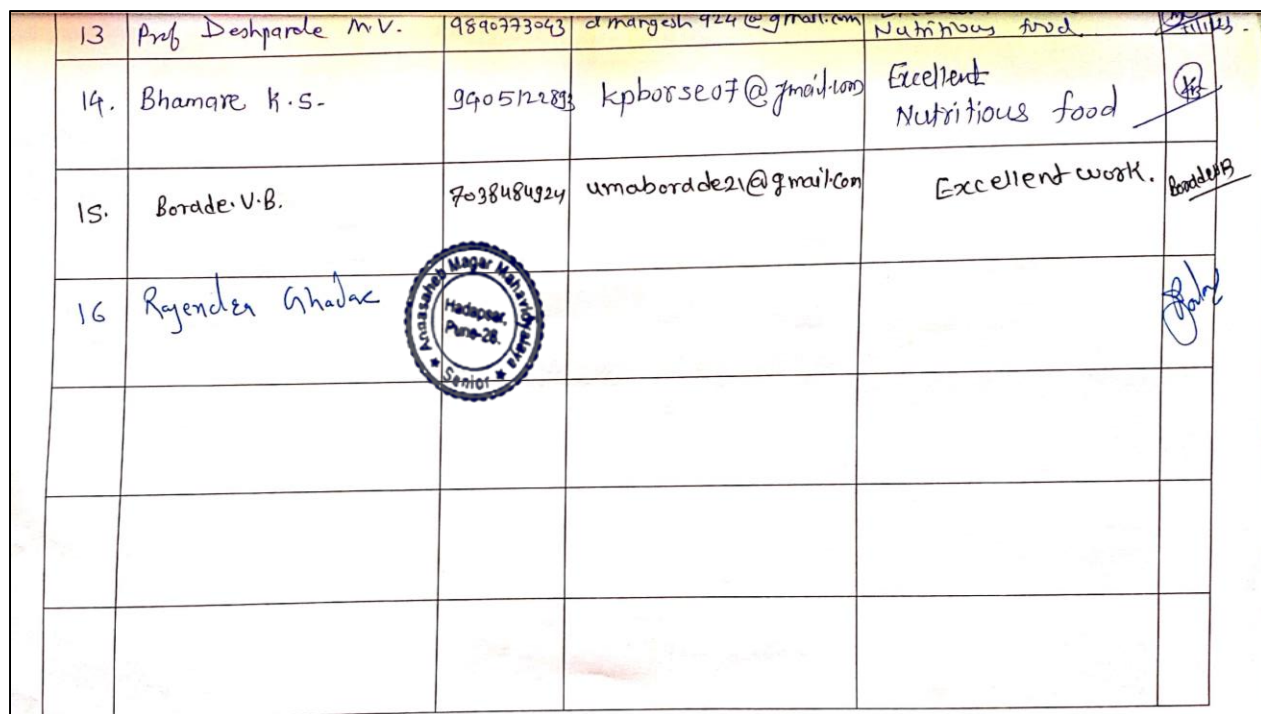 13 Prof Deshpande M.V. 9890773043 dmangesh924@gmail.com
Nutritious food.
14. Bhamare K.S. 9405122893 kpborse07@gmail.com Excellent
Nutritious food
15. Borade.V.B. 7038484924 umaboradde21@gmail.com Excellent work. BoraddeVB
16 Rajender Ghadge
Annasaheb Magar Mahavidyalaya
Hadapsar,
Pune-28.
★ Senior ★